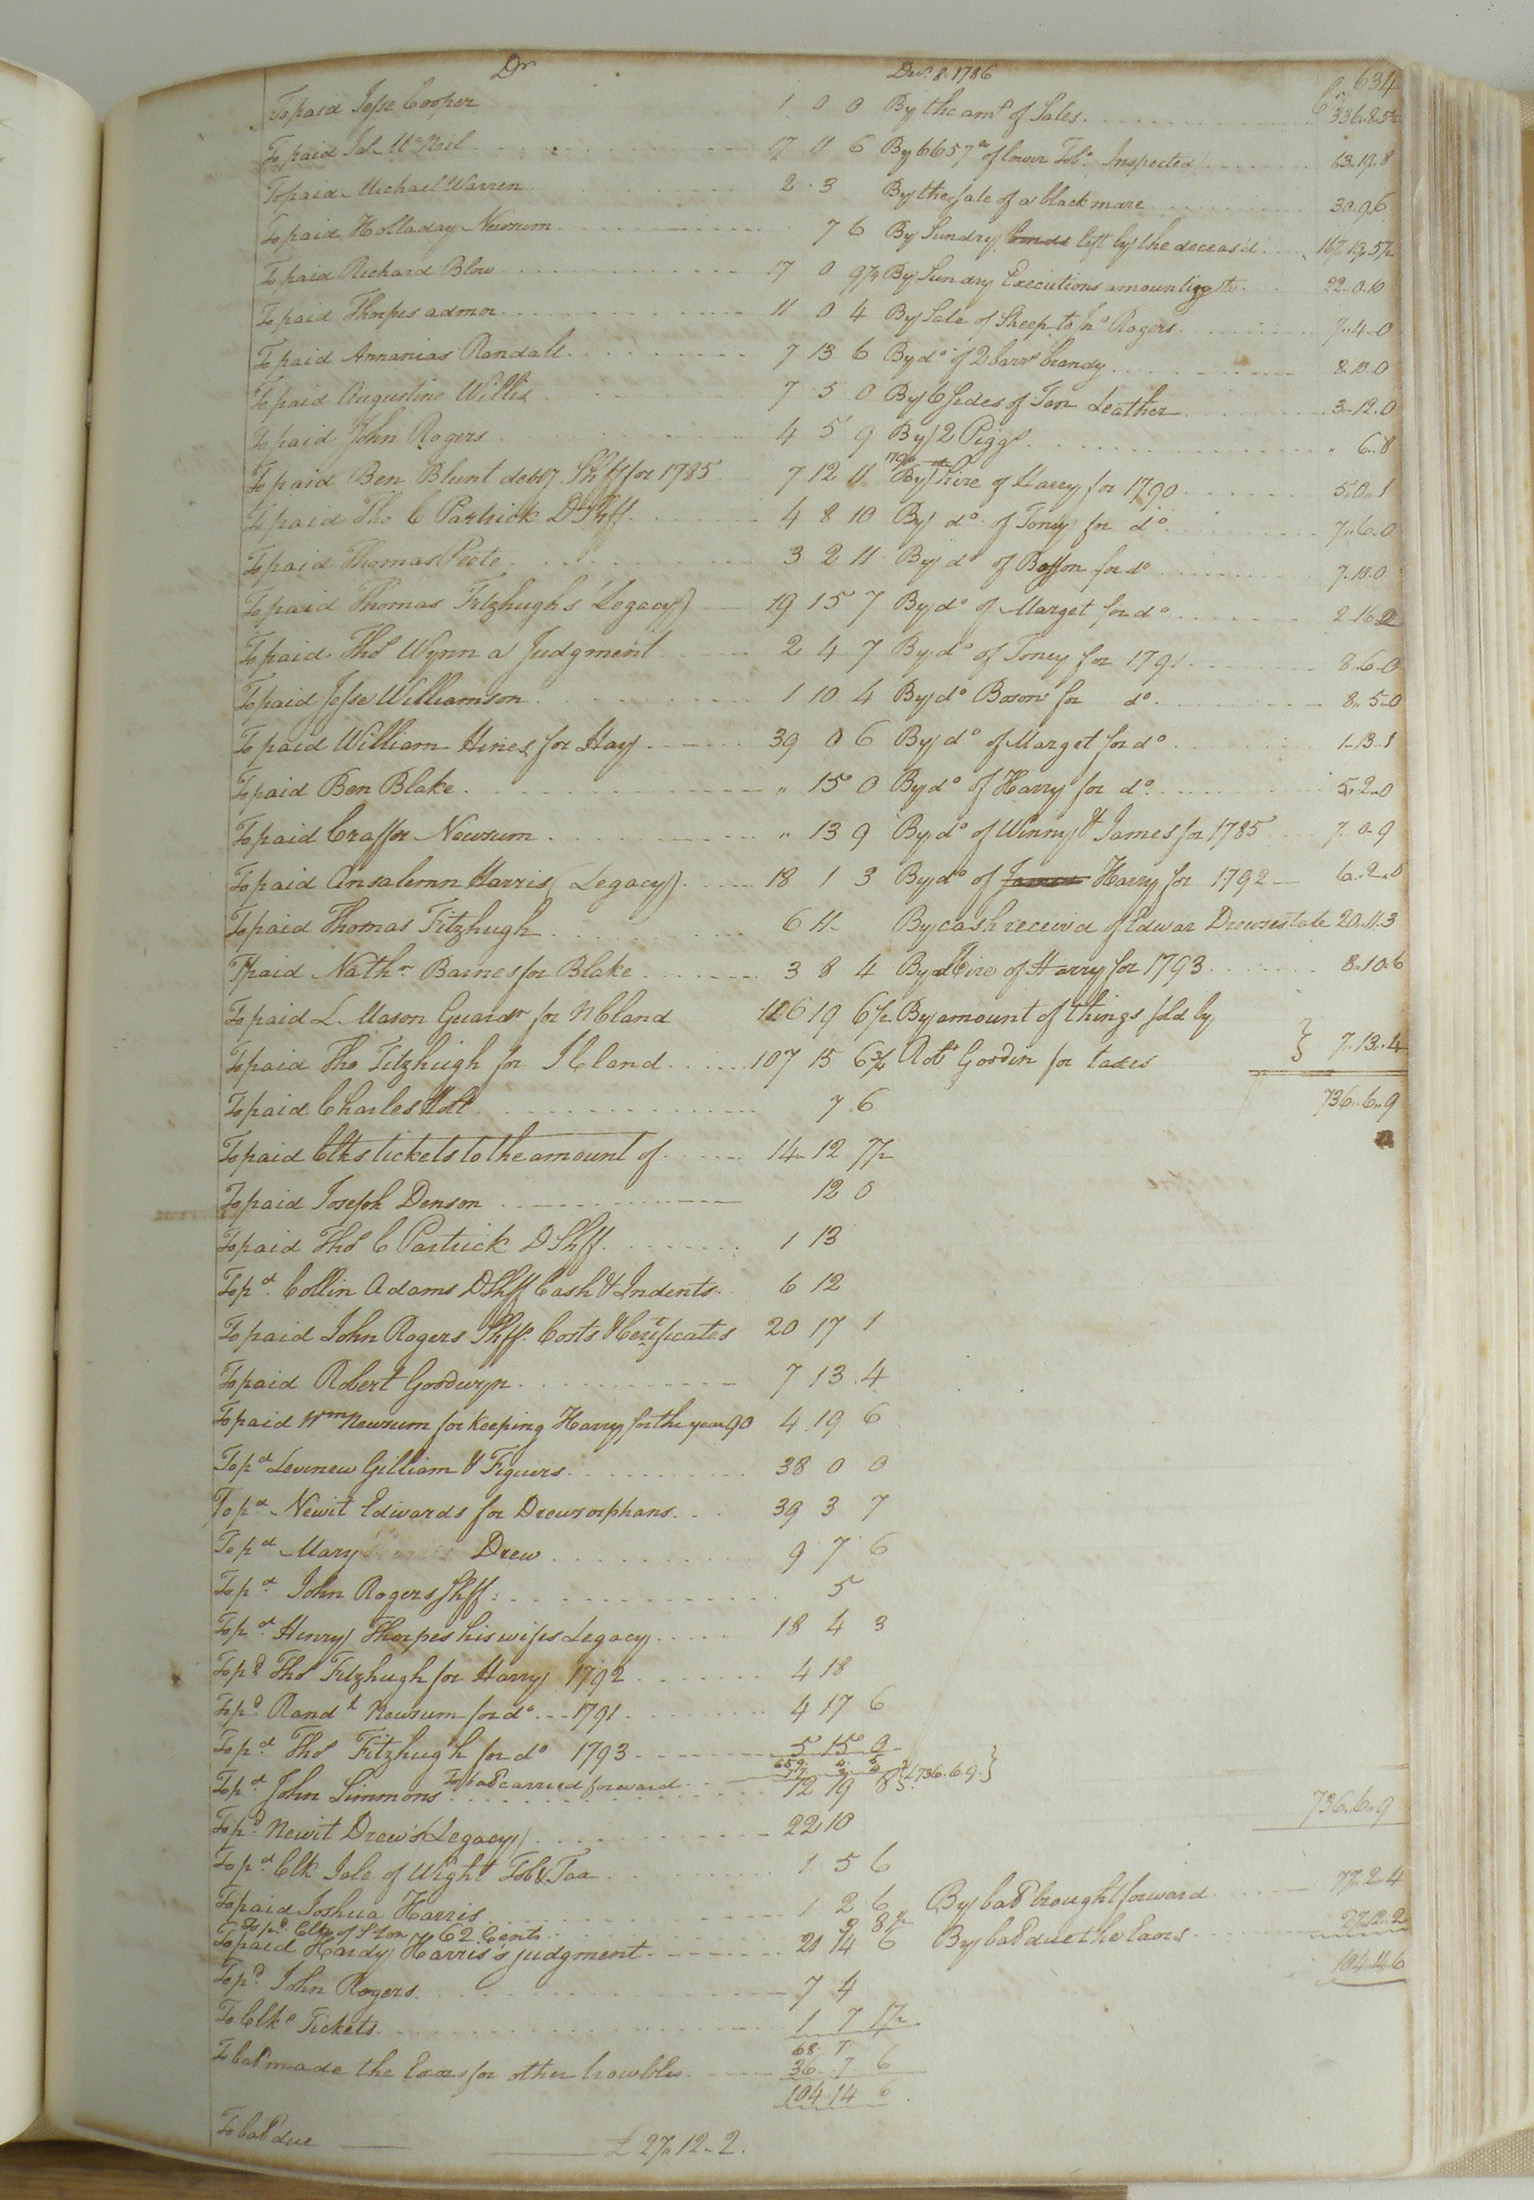 634
Dr Decr. 8. 1786 Cr
To paid Jesse Cooper 1 0 0 By the amt of Sales 336..8..5½
To paid Jas. McNeil 17 11 6 By 6657 lb of lower Tobo. Inspected 63..19..8
To paid Michael Warren 2 3 By the sale of a black mare 30..9..6
To paid Holladay Newsum 7 6 By Sundry bonds left by the deceas'd
To paid Richard Blow 17 0 9¾ By Sundry Executions amounting to 22..0..10
To paid Thorpes admor 11 0 4 By Sale of Sheep to Jno Rogers 7..4..0
To paid Annanias Randall 7 13 6 By do of 2 barrs brandy 8..10..0
To paid Augustine Willis 7 5 0 By 6 sides of Tan Leather 3..12..0
To paid John Rogers 4 5 9 By 2 Piggs " 6..8
To paid Ben Blunt debty Shff for 1785 7 12 11 By hire of Harry for 1790 5..0..1
To paid Tho. C Partrick D Shff. 4 8 10 By do of Toney for do 7..6..0
To paid Thomas Peete 3 2 11 By do of for do 7..10..0
To paid Thomas Fitzhughs (Legacy) 19 15 7 By do of Marget for do 2..16..2
To paid Thos Wynn a Judgment 2 4 7 By do of Toney for 1791 8..6..0
To paid Jesse Williamson 1 10 4 By do Boson for do 8..5..0
To paid William Hines for Hay 39 0 6 By do of Marget for do 1..13..1
To paid Ben Blake " 15 0 By do of Harry for do 5..2..0
To paid Crafford Newsum " 13 9 By do of Winny & James for 1785 7..0..9
To paid Ansalemn Harris (Legacy) 18 1 3 By do of James Harry for 1792 6..2..0
To paid Thomas Fitzhugh 6 11 By cash receivd of Edwar Drews estate 20..11..3
To paid Nathr Barnes for Blake 3 8 4 By Hire of Harry for 1793 8..10..6
To paid L. Mason Guardn for N Cland 106 19 6½ By amount of things sold by
To paid Tho Fitzhugh for I Cland 107 15 6¾ Robt Goodin for taxes } 7..13..4
To paid Charles Holt 7 6 736..6..9
To paid Clks tickets to the amount of 14 12 7½
To paid Joseph Denson 12 0
To paid Thos C Partrick D Shff 1 13
To pd. Collin Adams D Shff Cash & Indents 6 12
To paid John Rogers Shff. Costs & Certificates 20 17 1
To paid Robert Goodwyn 7 13 4
To paid Wm Newsum for keeping Harry for the year 90 4 19 6
To pd Gilliam & Figures 38 0 0
To pd Newit Edwards for Drews orphans 39 3 7
To pd Mary Drew 9 7 6
To pd John Rogers Shff. 5
To pd Henry Thorpes his wifes Legacy 18 4 3
To pd Thos Fitzhugh for Harry 1792 4 18
To pd Randl Newsum for do 1791 4 17 6
To pd Thos Fitzhugh for do 1793 5 15 9
To bal carried forward 77 2 4 } £736..6..9 }
To pd John Simmons 12 19 8 736..6..9
To pd Newit Drew's (Legacy) 22 10
To pd Clk Isle of Wight Tob & Tax 1 5 6
To paid Joshua Harris 1 2 6 By bal brought forward 77..2..4
To pd. Clk of 62 Cents
To paid Hardy Harris's judgment 20 14 6 By bal due the Exors 27..12..2
To pd John Rogers 7 4 104..14..6
To Clks Tickets 1 7 1½
68 7
To bal made the Exors for other troubles 36 7 6
104 14 6
To bal due £ 27..12..2.